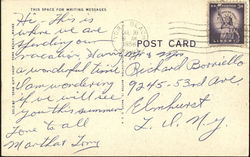 THIS SPACE FOR WRITING MESSAGES
POST CARD
Hi, This is
where we are
spending our
vacation. Having
a wonderful time.
I am wondering
if we will see
you this summer
Love to all
Martha &
Mr & Mrs
Richard Borriello
9245-53rd Ave
Elmhurst
L. I. N.Y.